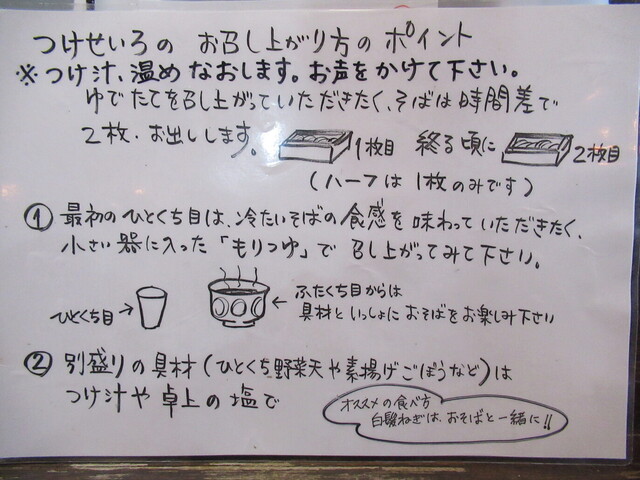 つけせいろの お召し上がり方のポイント
※つけ汁、温めなおします。お声をかけて下さい。
ゆでたてを召し上がっていただきたく、そばは時間差で
2枚、お出しします。 1枚目 終る頃に 2枚目
(ハーフは1枚のみです)
① 最初のひとくち目は、冷たいそばの食感を味わっていただきたく、
小さい器に入った「もりつゆ」で召し上がってみて下さい。
ひとくち目→ ← ふたくち目からは
具材といっしょにおそばをお楽しみ下さい
② 別盛りの具材(ひとくち野菜天や素揚げごぼうなど)は
つけ汁や卓上の塩で
オススメの食べ方
白髪ねぎは、おそばと一緒に!!